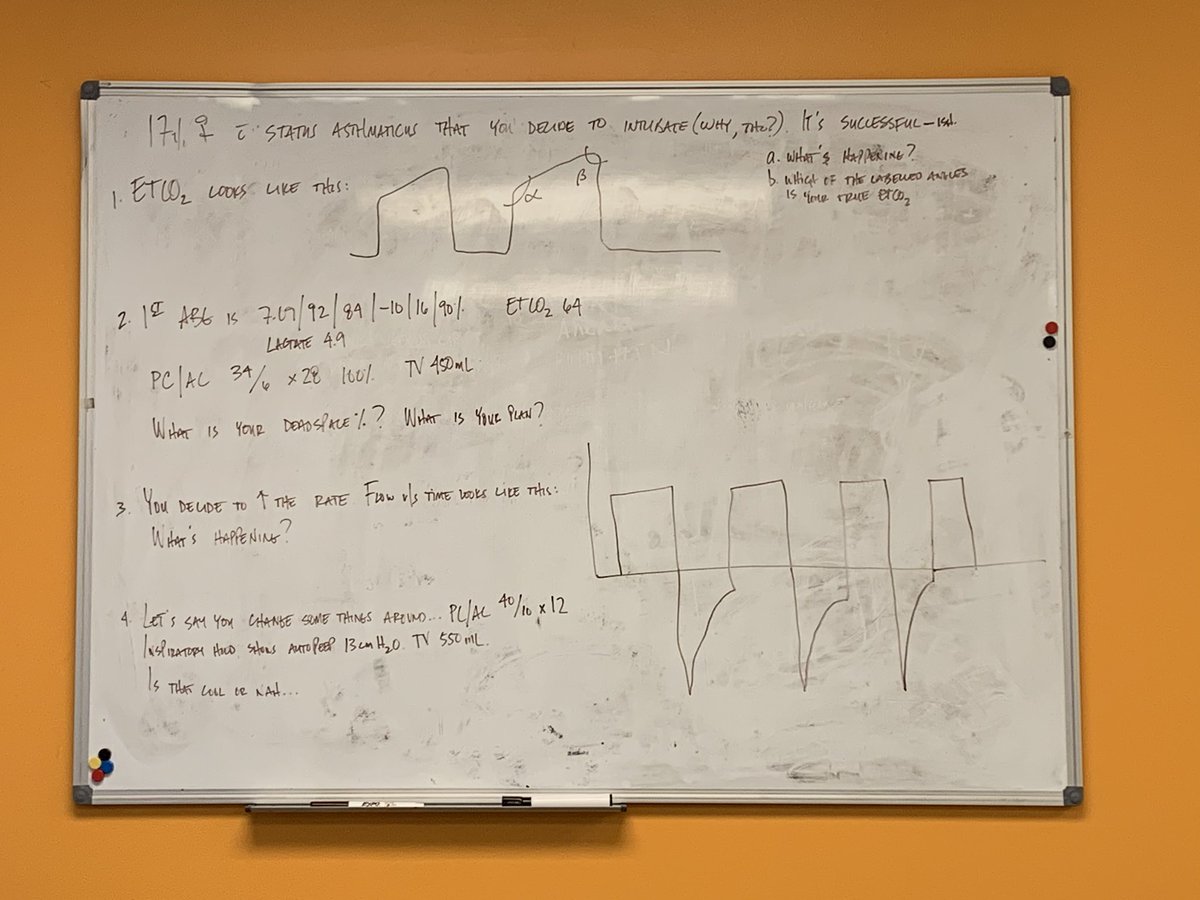 17y ♀ c̄ STATUS ASTHMATICUS THAT YOU DECIDE TO INTUBATE (WHY, THO?). IT'S SUCCESSFUL-ISH.
1. ETCO₂ LOOKS LIKE THIS:
α
β
a. WHAT'S HAPPENING?
b. WHICH OF THE LABELLED ANGLES
IS YOUR TRUE ETCO₂
2. 1ST ABG IS 7.07/92/84/-10/16/90% ETCO₂ 64
LACTATE 4.9
PC/AC 34/6 x 28 100% TV 450mL
WHAT IS YOUR DEADSPACE %? WHAT IS YOUR PLAN?
3. YOU DECIDE TO ↑ THE RATE FLOW v/s TIME LOOKS LIKE THIS:
WHAT'S HAPPENING?
4. LET'S SAY YOU CHANGE SOME THINGS AROUND... PC/AC 40/10 x 12
INSPIRATORY HOLD SHOWS AUTOPEEP 13cmH₂O. TV 550mL.
IS THAT COOL OR NAH...
EXPO